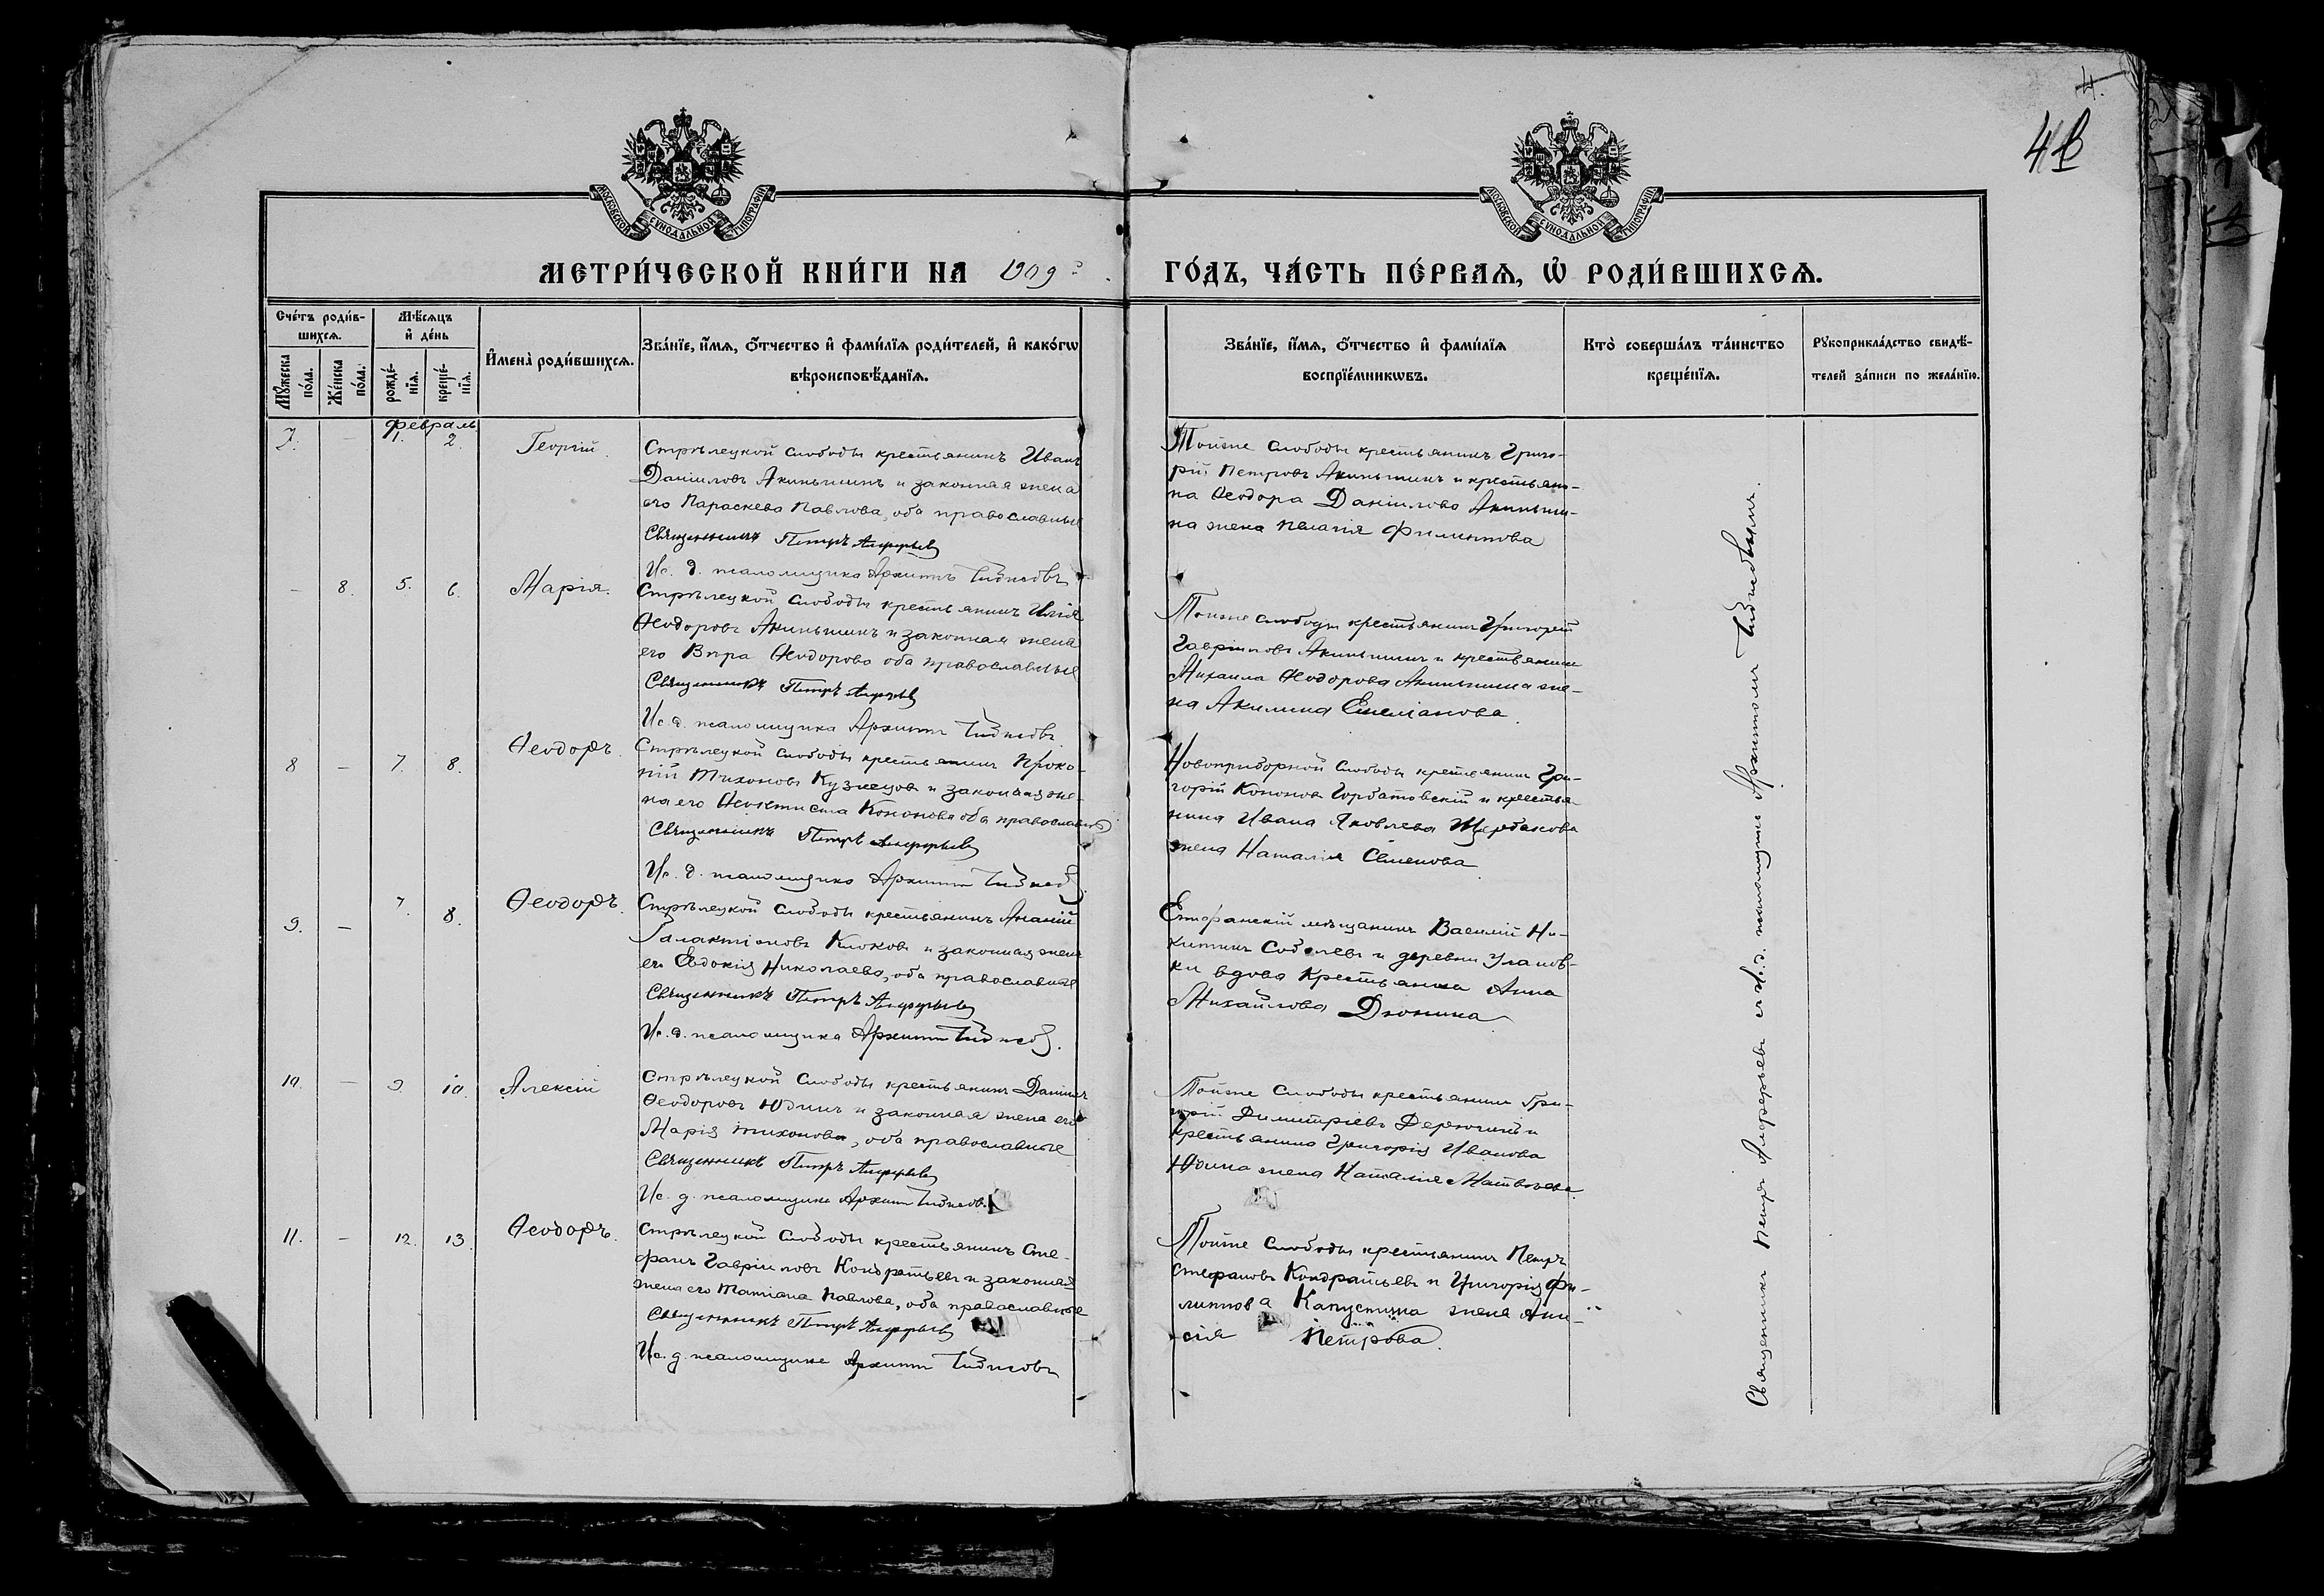 4.
4
МОСКОВСКОЙ СУНОДАЛЬНОЙ ТИПОГРАФІИ
МОСКОВСКОЙ СУНОДАЛЬНОЙ ТИПОГРАФІИ
МЕТРИ́ЧЕСКОЙ КНИ́ГИ НА 1909 ГО́ДЪ, ЧА́СТЬ ПЕ́РВАѦ, Ѡ҆ РОДИ́ВШИХСѦ.
Сче́тъ роди́в-
шихсѧ.
Мꙋ́жеска
по́ла.
Же́нска
по́ла.
Мѣ́сѧцъ
и҆ де́нь
рожде́-
нїѧ.
креще́-
нїѧ.
И҆мена̀ роди́вшихсѧ.
Зва́нїе, и҆́мѧ, ѻ҆́тчество и҆ фами́лїѧ роди́телей, и҆ како́гѡ
вѣроисповѣ́данїѧ.
Зва́нїе, и҆́мѧ, ѻ҆́тчество и҆ фами́лїѧ
воспрїе́мникѡвъ.
Кто̀ соверша́лъ та́инство
креще́нїѧ.
Рꙋкоприкла́дство свидѣ́-
телей за́писи по жела́нїю.
Февраль
7. — 1. 2. Георгій.
Стрѣлецкой слободы крестьянинъ Иванъ
Даніиловъ Акиньшинъ и законная жена
его Параскева Павлова, оба православные
Священникъ Петръ Алферьев
Ис. д. псаломщика Архипъ
Тойже слободы крестьянинъ Григо-
рій Петровъ Акиньшинъ и крестьяни-
на Ѳеодора Даніилова Акиньши-
на жена Пелагія Филиппова
— 8. 5. 6. Марія.
Стрѣлецкой слободы крестьянинъ Илія
Ѳеодоровъ Акиньшинъ и законная жена
его Вѣра Ѳеодорова оба православные
Священникъ Петръ Алферьев
Ис. д. псаломщика Архипъ
Тойже слободы крестьянинъ Григорій
Гавріиловъ Акиньшинъ и крестьянина
Михаила Ѳеодорова Акиньшина же-
на Акилина Емеліанова.
8 — 7. 8. Ѳеодоръ.
Стрѣлецкой слободы крестьянинъ Проко-
пій Тихоновъ Кузнецовъ и законная же-
на его Ѳеоктиста Кононова оба православные
Священникъ Петръ Алферьев
Ис. д. псаломщика Архипъ
Новоприборной слободы крестьянинъ Гри-
горій Кононовъ Горбатовскій и крестья-
нина Ивана Яковлева Щербакова
жена Наталія Семенова
9. — 7. 8. Ѳеодоръ.
Стрѣлецкой слободы крестьянинъ Ананій
Галактіоновъ Клоковъ и законная жена
его Евдокія Николаева, оба православные
Священникъ Петръ Алферьев
Ис. д. псаломщика Архипъ
Епифанскій мѣщанинъ Василій Ни-
китинъ Соболевъ и деревни Уланов-
ки вдова крестьянка Анна
Михайлова Дюнина
10. — 9. 10. Алексій
Стрѣлецкой слободы крестьянинъ Даніилъ
Ѳеодоровъ Юдинъ и законная жена его
Марія Тихонова, оба православные
Священникъ Петръ Алферьев
Ис. д. псаломщика Архипъ
Тойже слободы крестьянинъ Гри-
горій Димитріевъ и
крестьянина Григорія Иванова
Юдина жена Наталія Матвѣева
11. — 12. 13. Ѳеодоръ.
Стрѣлецкой слободы крестьянинъ Сте-
фанъ Гавріиловъ Кондратьевъ и законная
жена его Татіана Павлова, оба православные
Священникъ Петръ Алферьев
Ис. д. псаломщика Архипъ
Тойже слободы крестьянинъ Петръ
Стефановъ Кондратьевъ и Григорія Фи-
липпова Капустина жена Ани-
сія Петрова.
Священникъ Петръ Алферьевъ съ и. д. псаломщика Архипомъ